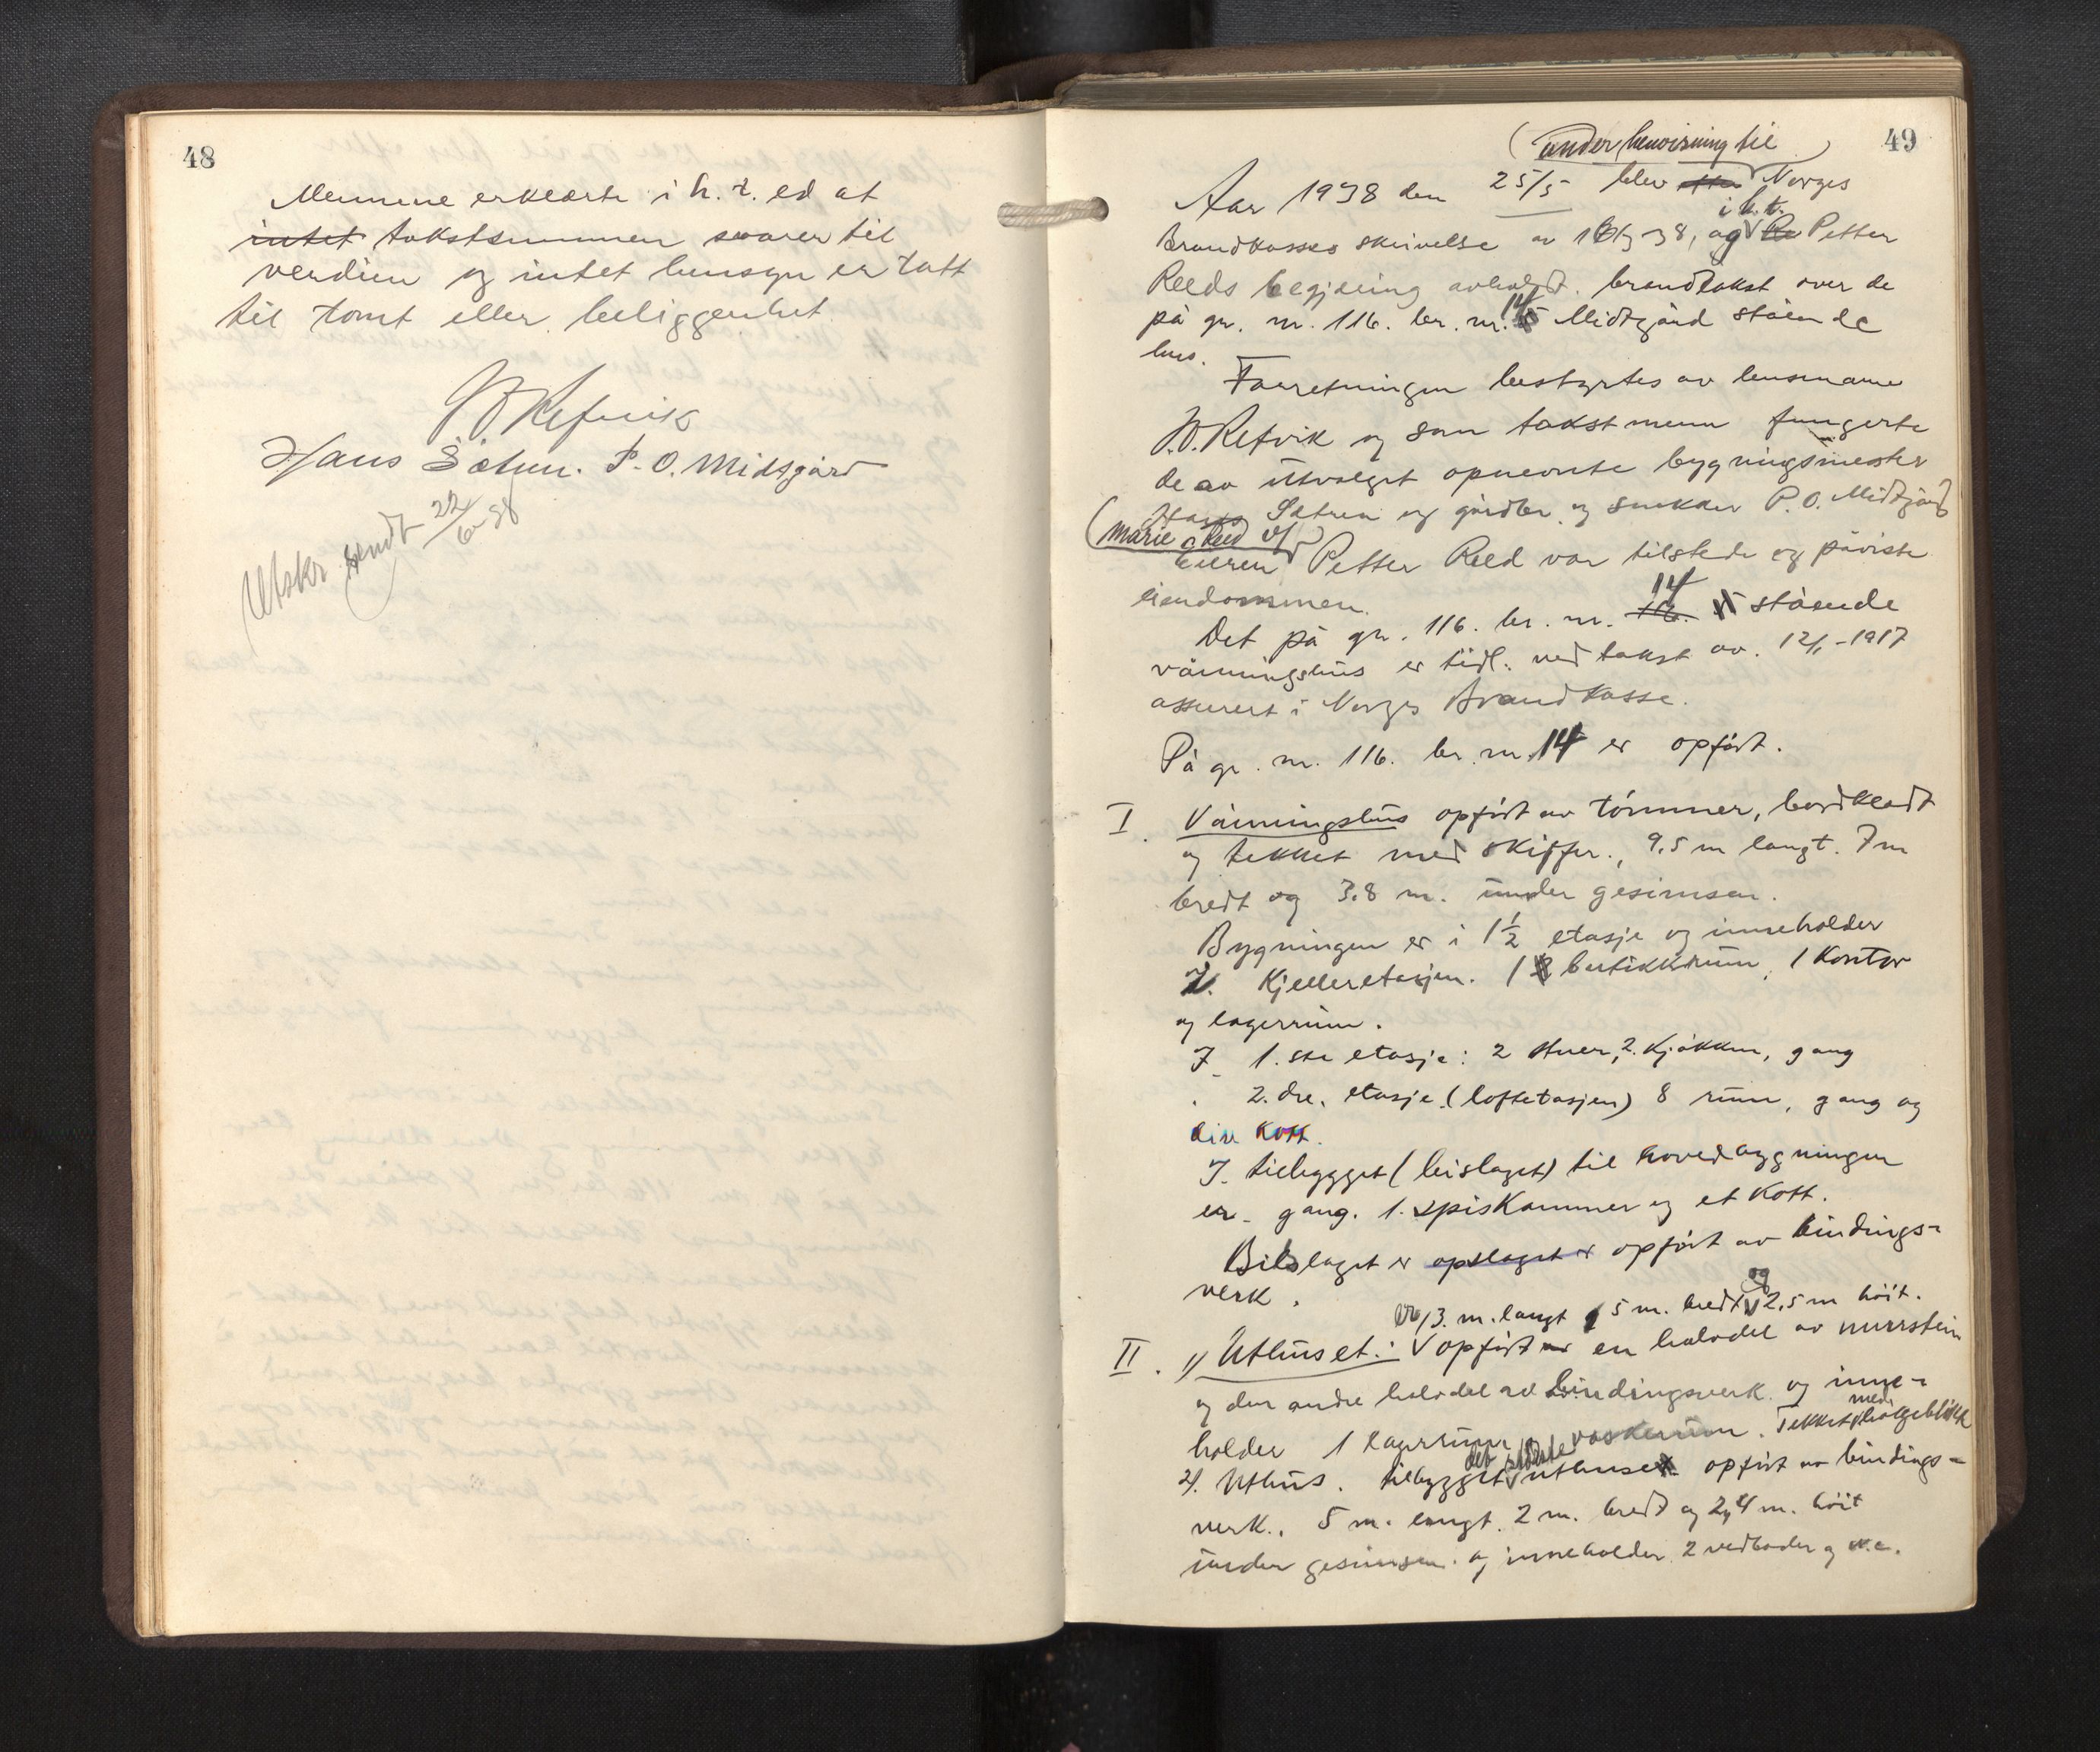 48
Mennene erklærte i h. t. ed at
intet takstsummen svarer til
verdien og intet hensyn er tatt
til tomt eller beliggenhet.
Refvik
Hans Sætren. P. O. Midtgård
Utskr. sendt 22/6-38
49
(under henvisning til)
Aar 1938 den 25/5 blev efter Norges
i h. t.
Brandkasses skrivelse av 38, og Petter
Reeds begjæring avholdt brandtakst over de
på gr. nr. 116. br. nr. 14 Midtgård stående
hus.
Forretningen bestyrtes av lensmann
Refvik og som takstmenn fungerte
de av utvalget opnevnte bygningsmester
Hans Sætren og gårdbr. og snekker P. O. Midtgård
(Marie Reed v/)
Eieren Petter Reed var tilstede og påviste
eiendommen.
14
Det på gr. 116. br. nr. stående
våningshus er tidl. ved takst av. 12/1-1917
assurert i Norges Brandkasse.
På gr. nr. 116. br. nr. 14 er opført.
I. Våningshus opført av tømmer, bordkledt
og tekket med skiffer., 9,5 m langt. 7 m
bredt og 3.8 m. under gesimsen.
Bygningen er i 1½ etasje og inneholder
I. Kjelleretasjen. 1 butikkrum, 1 Kontor
og lagerrum.
I 1.ste etasje: 2 stuer, 2. Kjøkken, gang
2. dre. etasje (loftetasjen) 8 rum, gang og
div. Kott.
I. tilbygget (bislaget) til hovedbygningen
er gang. 1. spisKammer og et Kott.
Bislaget er opslaget er opført av bindings-
verk.
er 13. m. langt 5 m. bredt og 2,5 m høit.
II. 1/ Uthuset: opført en halvdel av murstein
og den andre halvdel av bindingsverk og inne-
holder 1 lagerrum og vaskerum. Tekket med bølgeblikk
2/. Uthus. tilbygget det største uthuset opført av bindings-
verk.. 5 m. langt. 2 m. bredt og 2,4 m. høit
under gesimsen. og inneholder 2 vedboder og w.c.